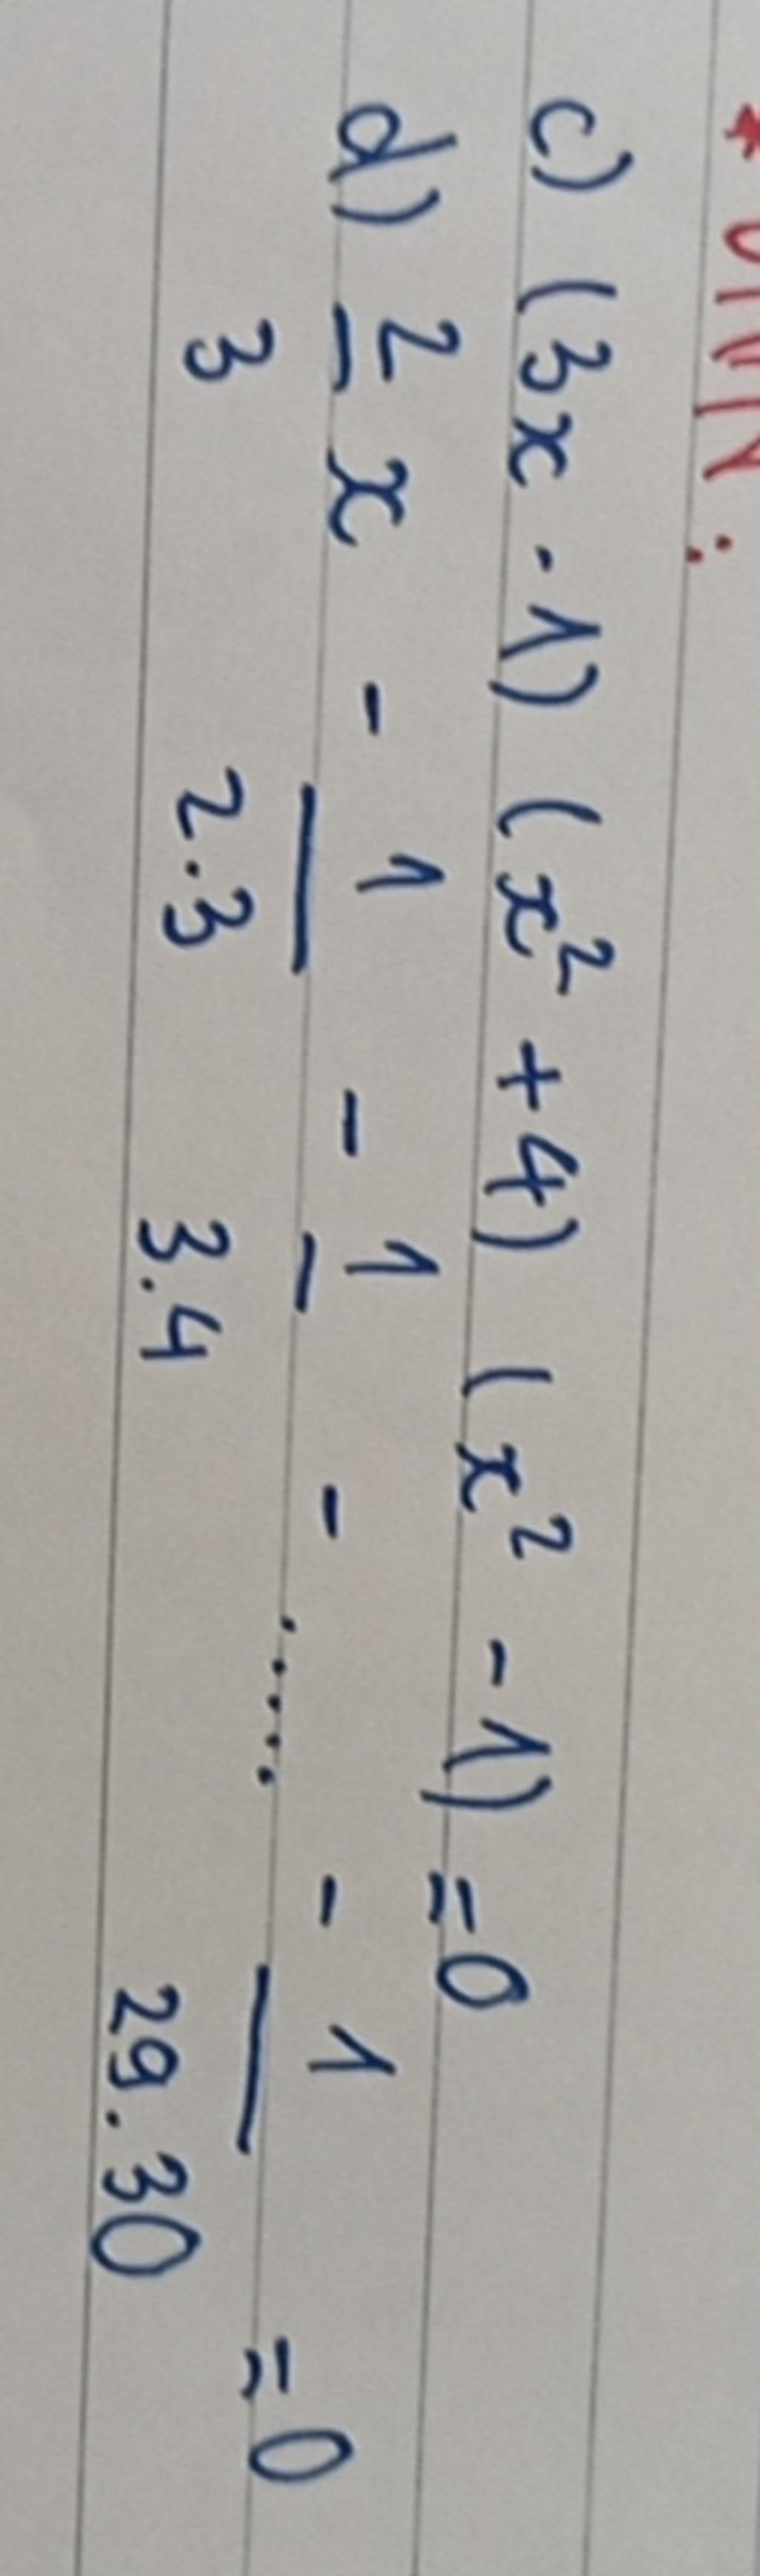 c) (3x - 1) (x² + 4) (x² - 1) = 0
d) 2/3 x - 1/2.3 - 1/3.4 - ..... - 1/29.30 = 0